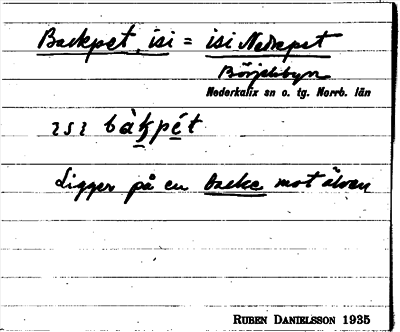 Backpet, isi = isi Nederpet
Börjelsbyn
Nederkalix sn o. tg. Norrb. län
ɪsɪ bàk̠pé̠t
Ligger på en backe mot älven
RUBEN DANIELSSON 1935